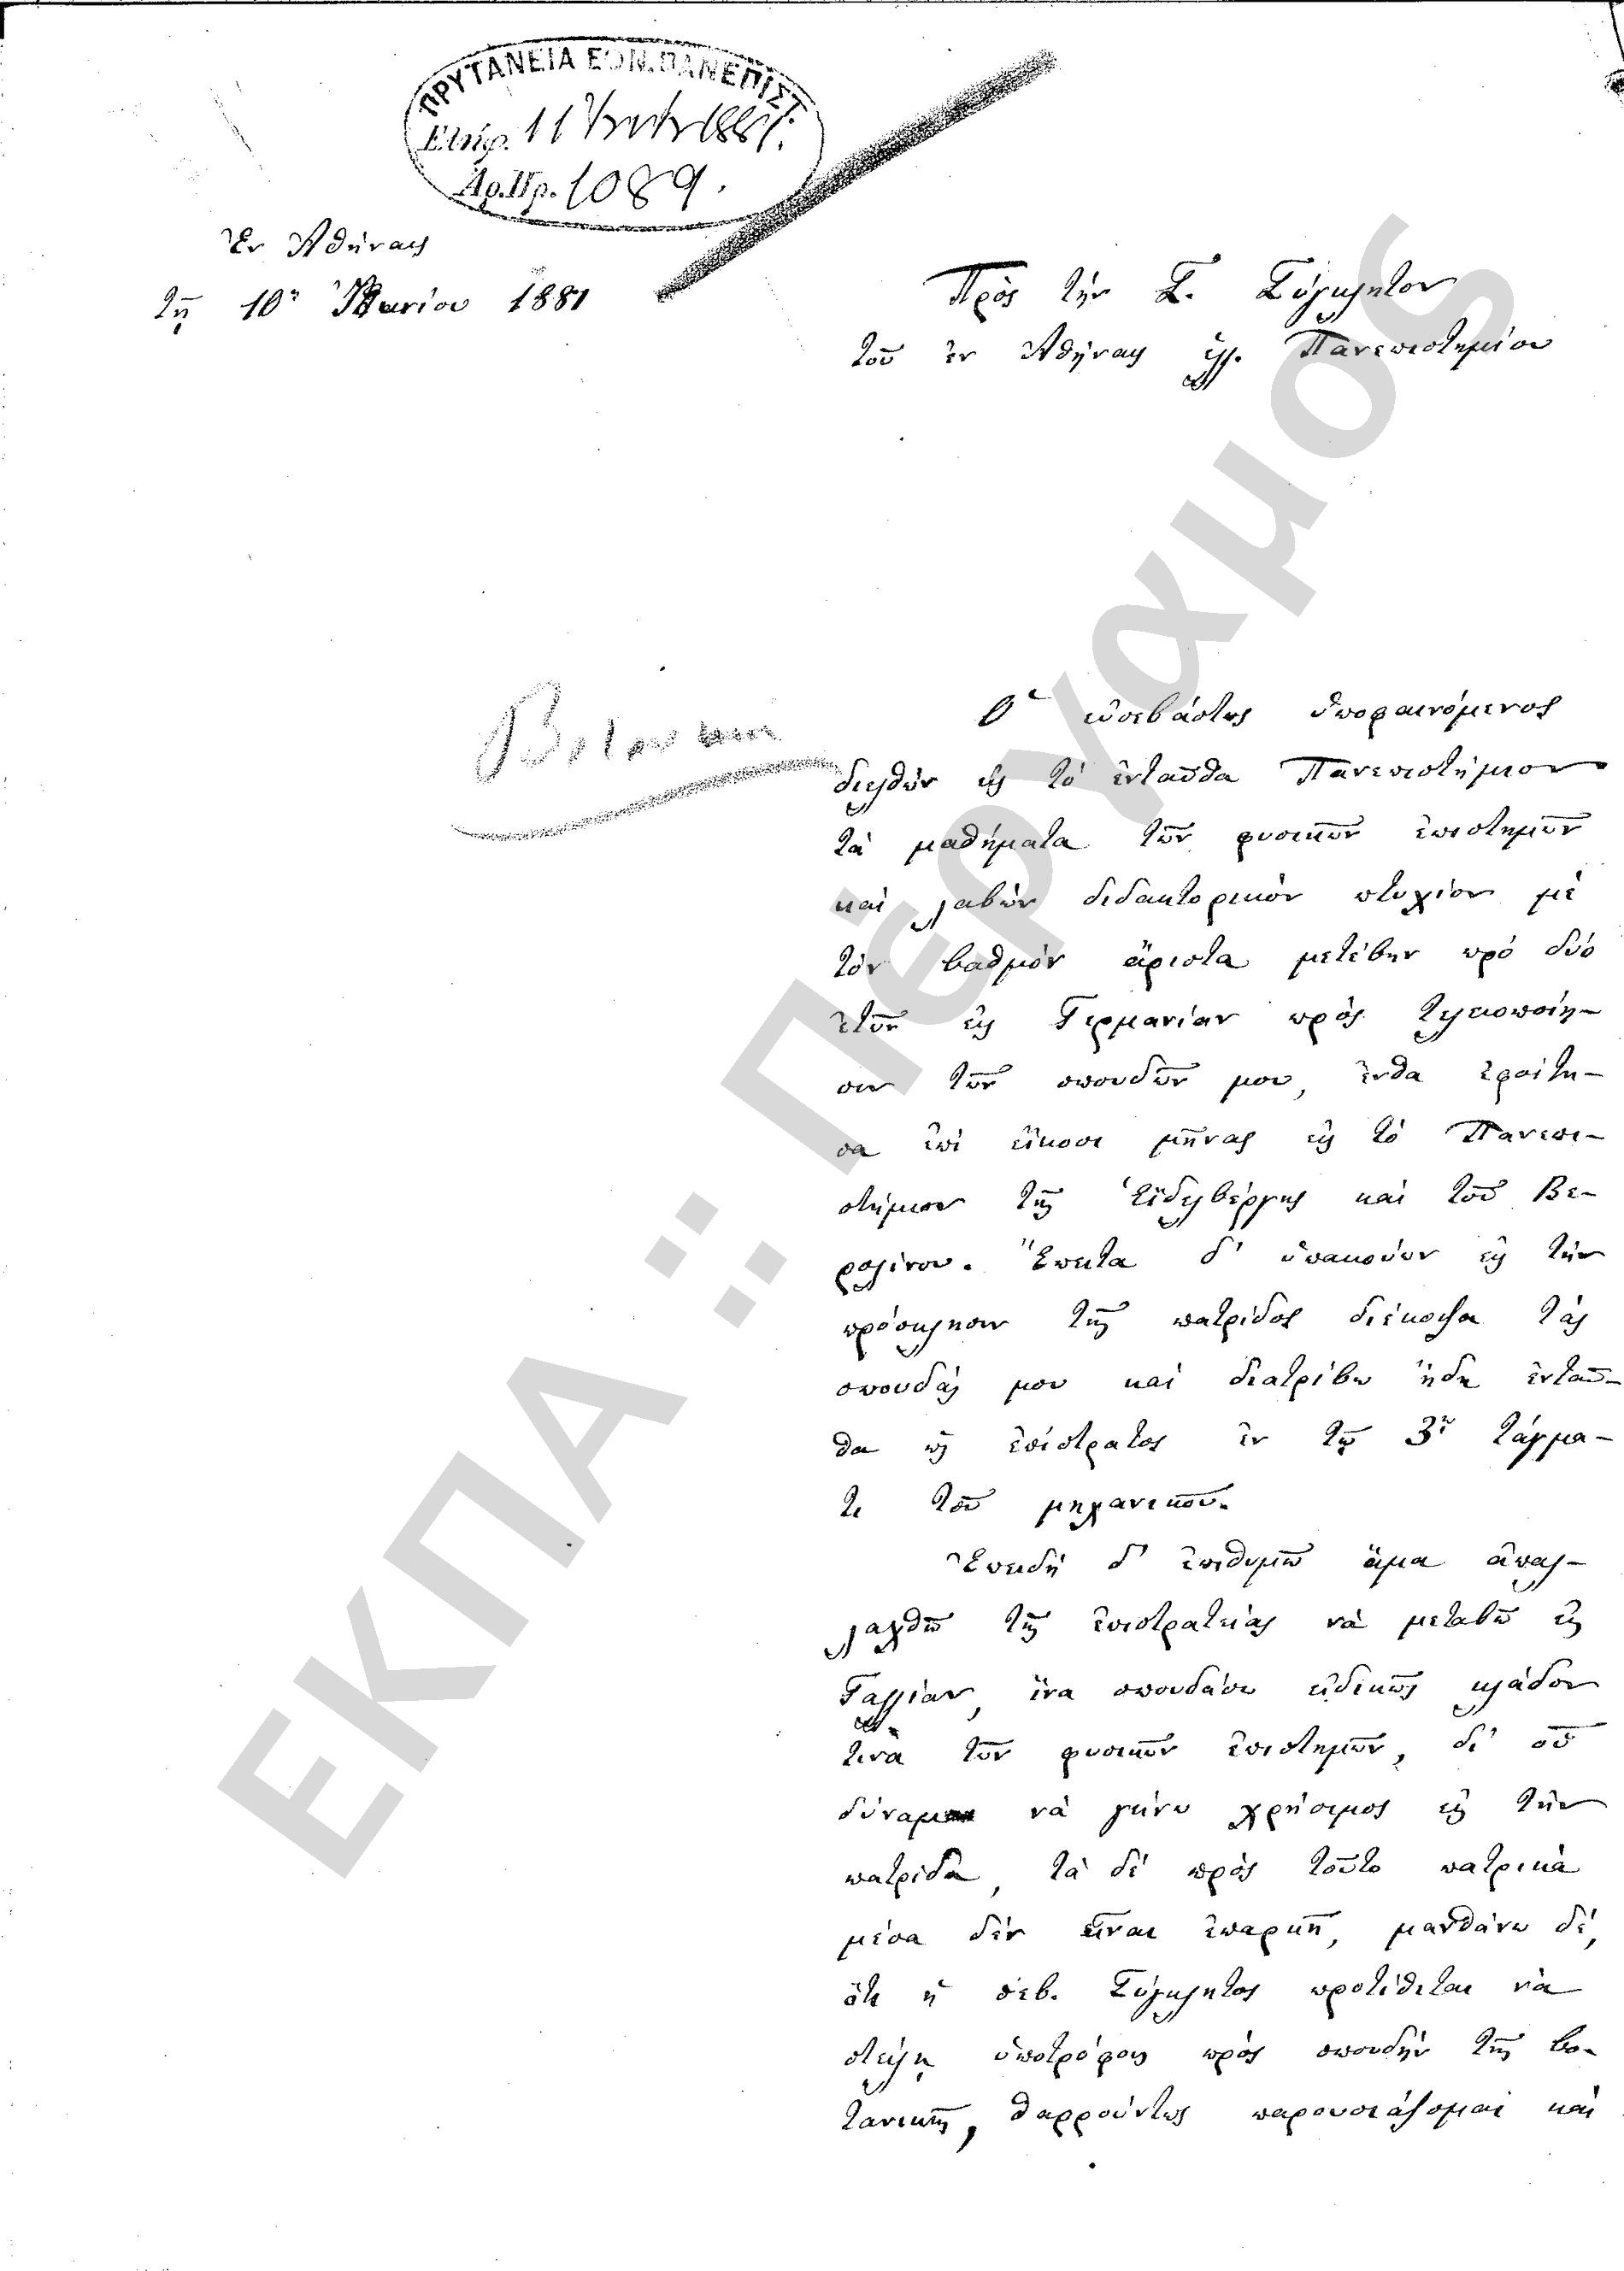 ΠΡΥΤΑΝΕΙΑ ΕΘΝ. ΠΑΝΕΠΙΣΤ.
Ελήφ. 11 1881.
Αρ. Πρ. 1089.
Ἐν Ἀθήναις
τῇ 10ῃ 1881
Πρὸς τὴν Σ. Σύγκλητον
τοῦ ἐν Ἀθήναις ἑλλ. Πανεπιστημίου
Ὁ εὐσεβάστως ὑποφαινόμενος
διελθὼν εἰς τὸ ἐνταῦθα Πανεπιστήμιον
τὰ μαθήματα τῶν φυσικῶν ἐπιστημῶν
καὶ λαβὼν διδακτορικὸν πτυχίον μὲ
τὸν βαθμὸν ἄριστα μετέβην πρὸ δύο
ἐτῶν εἰς Γερμανίαν πρὸς τελειοποίη-
σιν τῶν σπουδῶν μου, ἔνθα ἐφοίτη-
σα ἐπὶ εἴκοσι μῆνας εἰς τὸ Πανεπι-
στήμιον τῆς Ἑϊδελβέργης καὶ τοῦ Βε-
ρολίνου. Ἔπειτα δ' ὑπακούων εἰς τὴν
πρόσκλησιν τῆς πατρίδος διέκοψα τὰς
σπουδάς μου καὶ διατρίβω ἤδη ἐνταῦ-
θα ὡς ἐπίστρατος ἐν τῷ 3ῳ τάγμα-
τι τοῦ μηχανικοῦ.
Ἐπειδὴ δ' ἐπιθυμῶ ἅμα ἀπαλ-
λαχθῶ τῆς ἐπιστρατείας νὰ μεταβῶ εἰς
Γαλλίαν, ἵνα σπουδάσω εἰδικῶς κλάδον
τινὰ τῶν φυσικῶν ἐπιστημῶν, δι' οὗ
δύναμαι νὰ γείνω χρήσιμος εἰς τὴν
πατρίδα, τὰ δὲ πρὸς τοῦτο πατρικὰ
μέσα δὲν εἶναι ἐπαρκῆ, μανθάνω δὲ,
ὅτι ἡ σεβ. Σύγκλητος προτίθεται νὰ
στείλῃ ὑποτρόφους πρὸς σπουδὴν τῆς βο-
τανικῆς, θαρρούντως παρουσιάζομαι καὶ
ΕΚΠΑ :: Πέργαμος